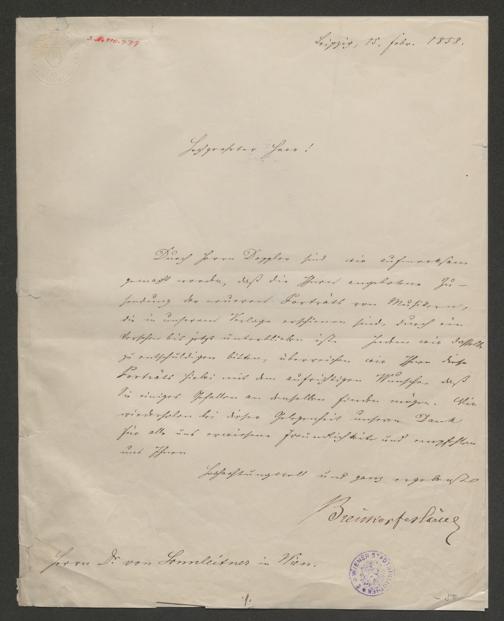 Leipzig, 15. Febr. 1858.
Hochgeehrter Herr!
Durch Herrn Doppler sind wir aufmerksam
gemacht worden, daß die Ihnen angebotene Zu-
sendung der neueren Porträts von Musikern,
die in unserem Verlage erschienen sind, durch ein
Versehen bis jetzt unterblieben ist. Indem wir dasselbe
zu entschuldigen bitten, überreichen wir Ihnen diese
Porträts hiebei mit dem aufrichtigen Wunsche, daß
Sie einiges Gefallen an denselben finden mögen. Wir
wiederholen bei dieser Gelegenheit unseren Dank
für alle uns erwiesene Freundlichkeit und empfehlen
uns Ihnen
Hochachtungsvoll und ganz ergebenst
Breitkopf & Härtel
Herrn Dr. von Sonnleitner in Wien.